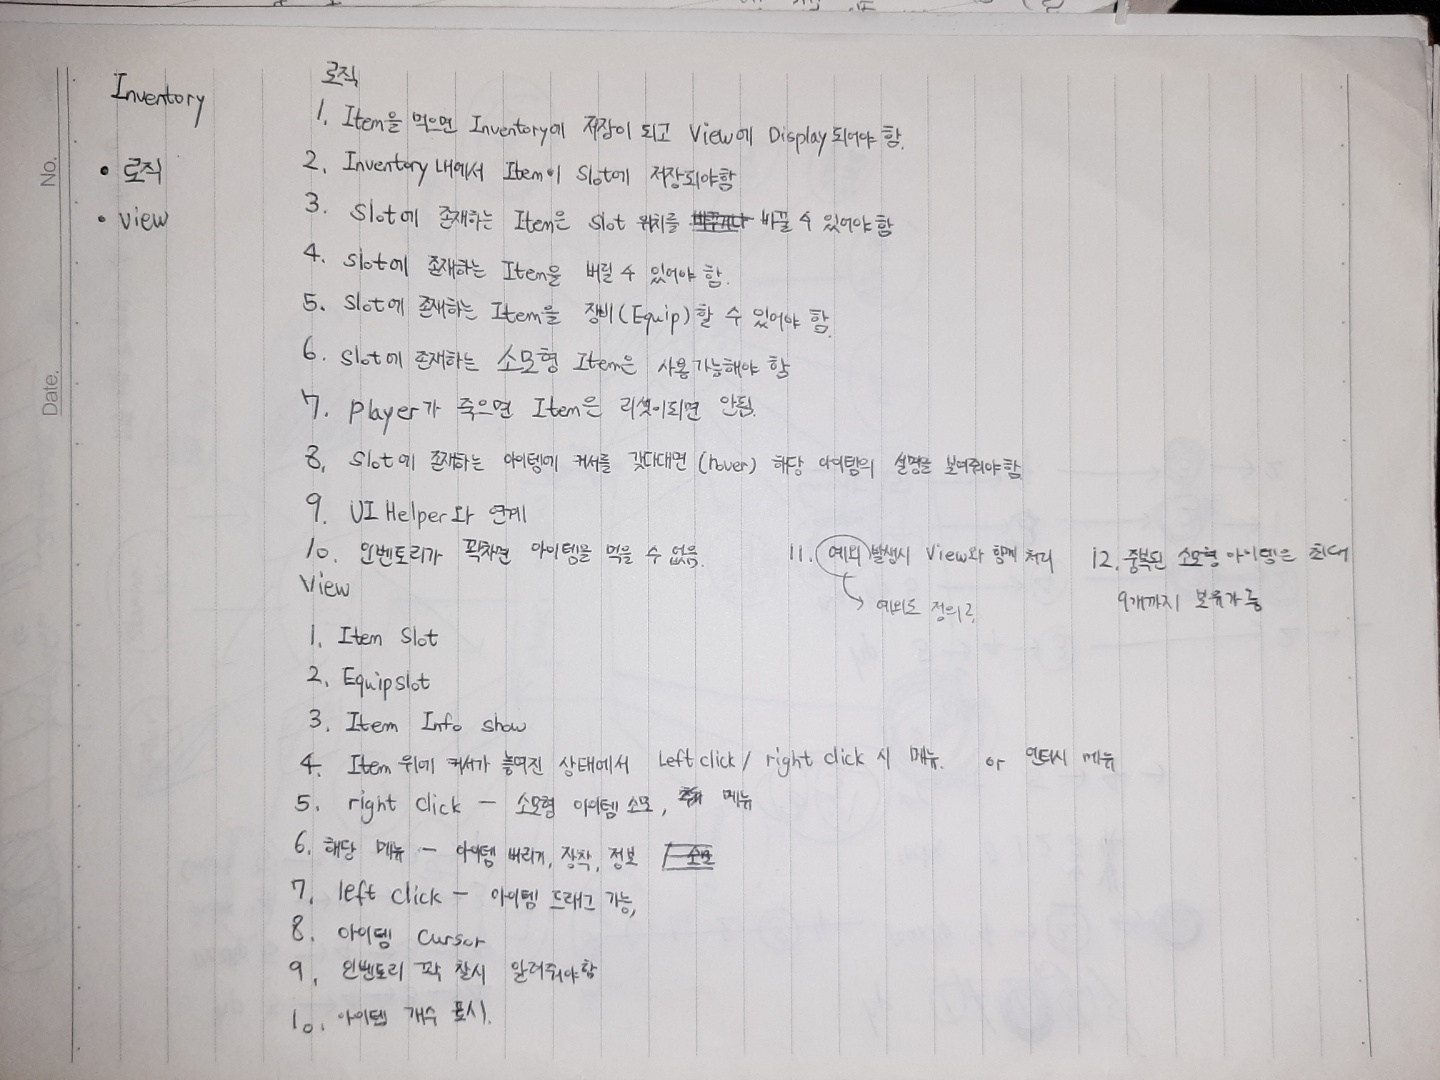 No.
Date.
Inventory
• 로직
• view
로직
1. Item을 먹으면 Inventory에 저장이 되고 View에 Display되어야 함.
2. Inventory 내에서 Item이 Slot에 저장되야함
3. Slot에 존재하는 Item은 Slot 위치를 바꿀 수 있어야 함
4. Slot에 존재하는 Item을 버릴 수 있어야 함.
5. Slot에 존재하는 Item을 장비(Equip)할 수 있어야 함.
6. Slot에 존재하는 소모형 Item은 사용가능해야 함
7. player가 죽으면 Item은 리셋이되면 안됨.
8. Slot에 존재하는 아이템에 커서를 갖다대면 (hover) 해당 아이템의 설명을 보여줘야함
9. UI Helper와 연계
10. 인벤토리가 꽉차면 아이템을 먹을 수 없음.
11. 예외 발생시 View와 함께 처리
예외도 정의
12. 중복된 소모형 아이템은 최대
9개까지 보유가능
View
1. Item Slot
2. Equipslot
3. Item Info show
4. Item 위에 커서가 놓여진 상태에서 Left click / right click 시 메뉴. or 엔터시 메뉴
5. right click - 소모형 아이템 소모, 메뉴
6. 해당 메뉴 - 아이템 버리기, 장착, 정보
7. left click - 아이템 드래그 가능,
8. 아이템 cursor
9. 인벤토리 꽉 찰시 알려줘야함
10. 아이템 개수 표시.